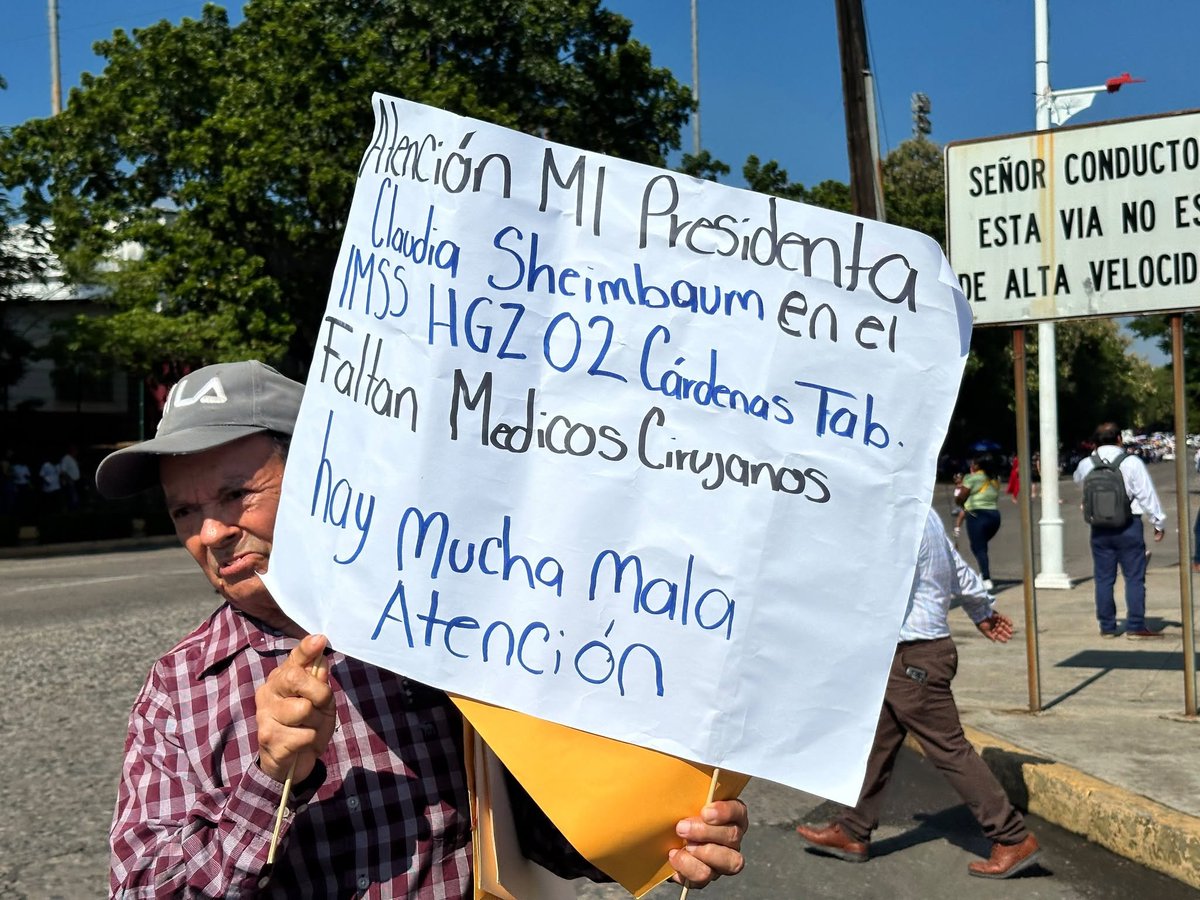 Atención MI Presidenta
Claudia Sheimbaum en el
IMSS HGZ 02 Cárdenas Tab.
Faltan Medicos Cirujanos
hay Mucha mala
Atención
SEÑOR CONDUCTO
ESTA VIA NO ES
DE ALTA VELOCID